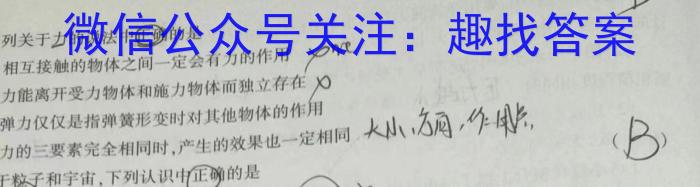 微信公众号关注：趣找答案
列关于力的说法中正确的是
相互接触的物体之间一定会有力的作用
力能离开受力物体和施力物体而独立存在
弹力仅仅是指弹簧形变时对其他物体的作用
力的三要素完全相同时，产生的效果也一定相同 大小、方向、作用点， （B）
于粒子和宇宙，下列认识中正确的是